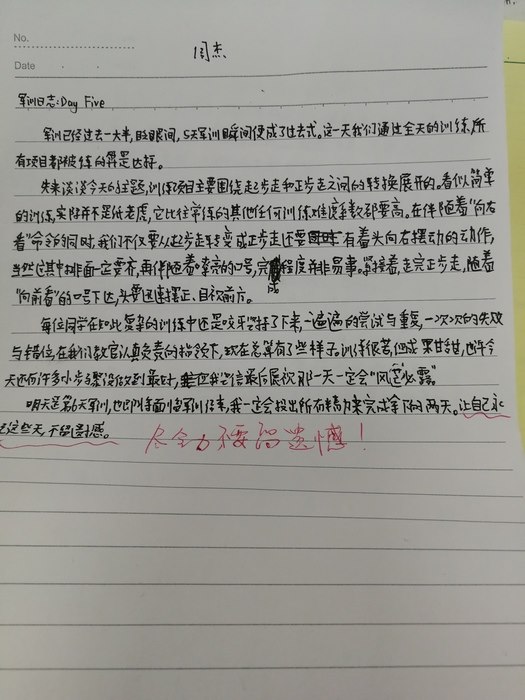 No.
周杰
Date
军训日志:Day Five
军训已经过去一大半,眨眼间,5天军训瞬间便成了过去式。这一天我们通过全天的训练,所
有项目都被练的算是达标。
先来谈谈今天的主题,训练项目主要围绕起步走和正步走之间的转换展开的。看似简单
的训练,实际并不能考虑,它比往常练的其他任何训练难度系数都要高。在伴随着"向右
看"命令的同时,我们不仅要从起步走转变成正步走还要有着头向右摆动的动作,
当然这其中排面一定要齐,再伴随着嘹亮的口号,完成程度并非易事。紧接着,走完正步走,随着
"向前看"的口号下达,头要迅速摆正、目视前方。
每位同学在如此复杂的训练中还是咬牙坚持了下来,一遍遍的尝试与重复,一次次的失败
与错位,在我们教官认真负责的指领下,现在总算有了些样子。训练很苦,但成果甘甜,也许今
天还有许多小步骤没做到最好,但我坚信最后展视那一天一定会"风芒必露"。
明天是第6天军训,也即将面临军训结束,我一定会投出所有精力来完成余下的两天。让自己永
远这些天,不留遗憾。
尽全力不要留遗憾!